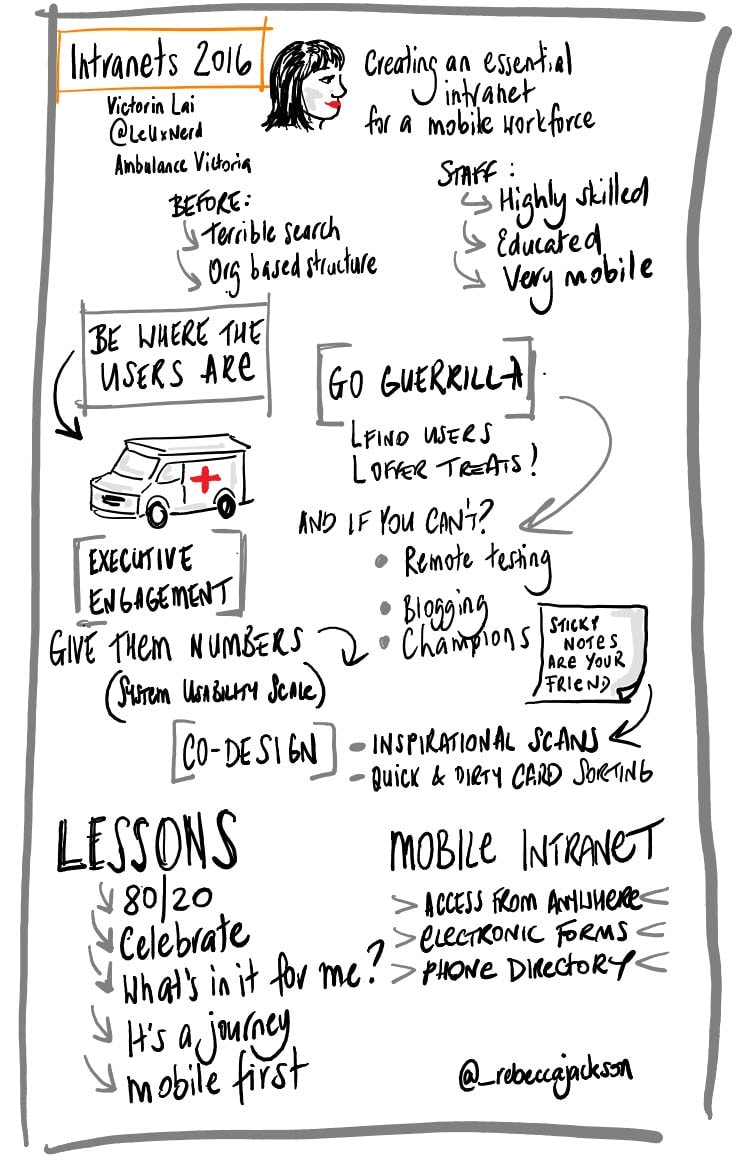 Intranets 2016
Victorin Lai
@LeUxNerd
Ambulance Victoria
Creating an essential
intranet
for a mobile workforce
BEFORE:
Terrible search
Org based structure
STAFF:
Highly skilled
Educated
Very mobile
BE WHERE THE
USERS ARE
GO GUERRILLA
FIND USERS
OFFER TREATS!
AND IF YOU CAN'T?
Remote testing
Blogging
Champions
EXECUTIVE
ENGAGEMENT
GIVE THEM NUMBERS
(SYSTEM USABILITY SCALE)
STICKY
NOTES
ARE YOUR
FRIEND
CO-DESIGN
- INSPIRATIONAL SCANS
- QUICK & DIRTY CARD SORTING
LESSONS
80/20
Celebrate
What's in it for me?
It's a journey
mobile first
MOBILE INTRANET
> ACCESS FROM ANYWHERE <
> ELECTRONIC FORMS <
> PHONE DIRECTORY <
@_rebeccajackson